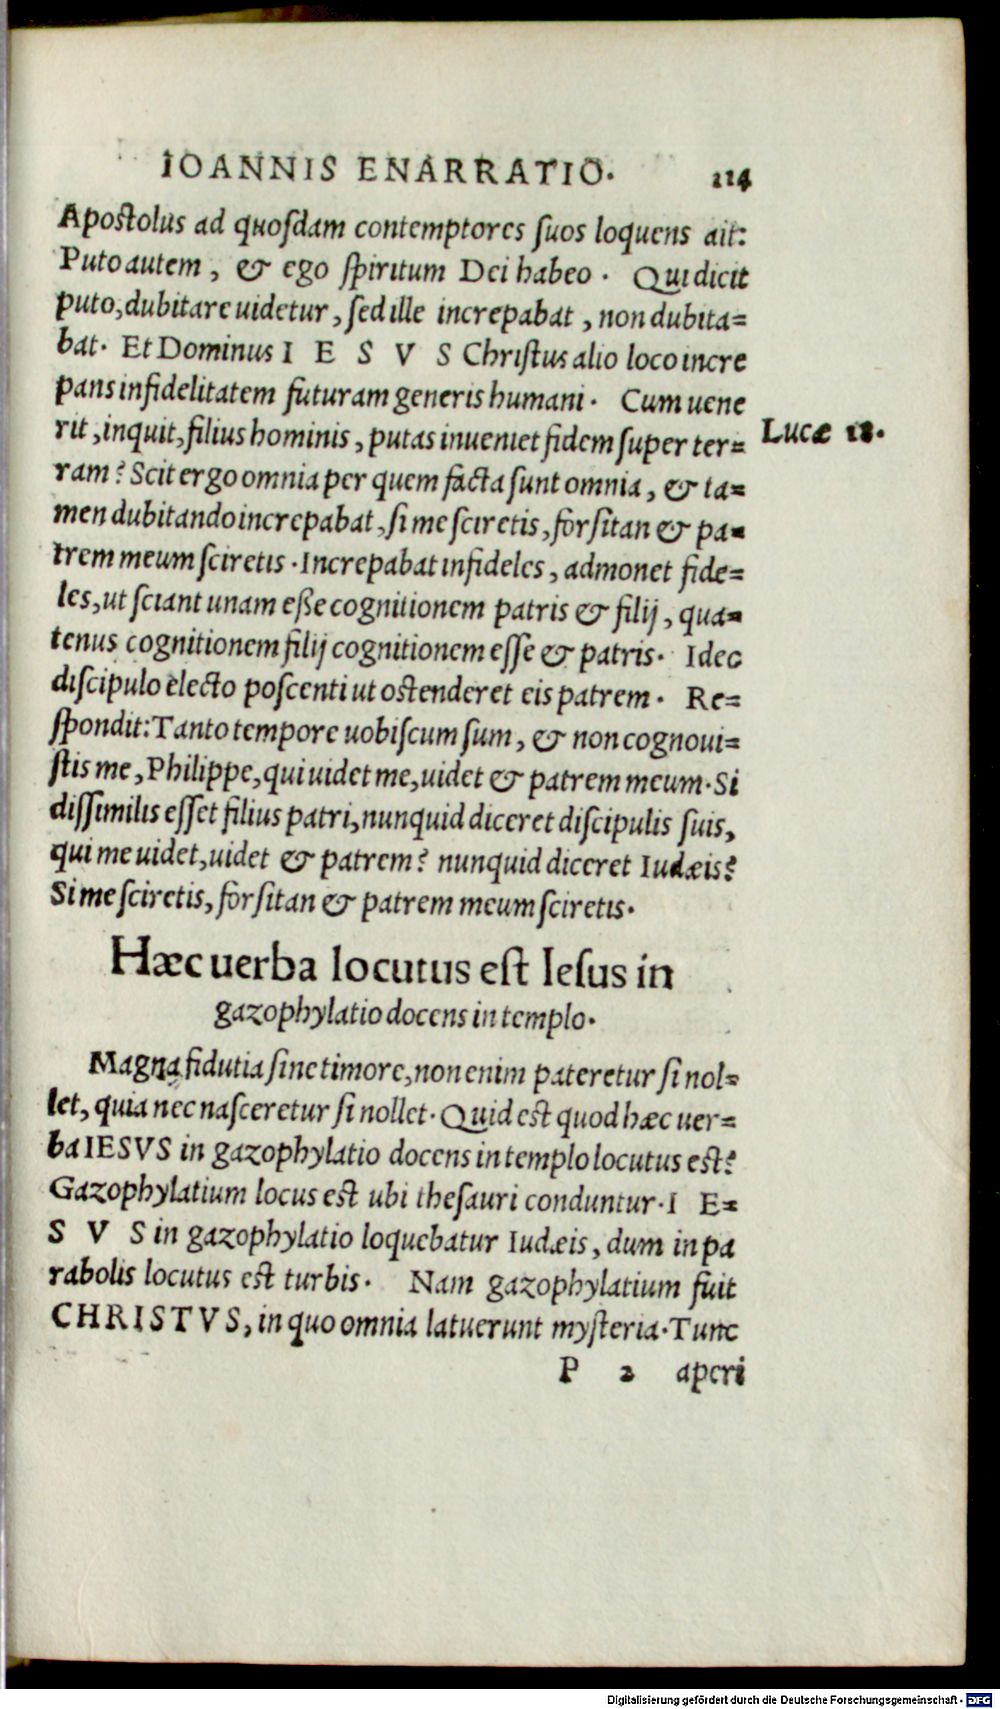 IOANNIS ENARRATIO. 114
Apostolus ad quosdam contemptores suos loquens ait:
Puto autem, & ego spiritum Dei habeo. Qui dicit
puto, dubitare uidetur, sed ille increpabat, non dubita=
bat. Et Dominus I E S V S Christus alio loco incre
pans infidelitatem futuram generis humani. Cum uene
rit, inquit, filius hominis, putas inueniet fidem super ter=
Lucæ 18.
ram? Scit ergo omnia per quem facta sunt omnia, & ta=
men dubitando increpabat, si me sciretis, forsitan & pa=
trem meum sciretis. Increpabat infideles, admonet fide=
les, ut sciant unam eße cognitionem patris & filij, qua=
tenus cognitionem filij cognitionem esse & patris. Ideo
discipulo electo poscenti ut ostenderet eis patrem. Re=
spondit: Tanto tempore uobiscum sum, & non cognoui=
stis me, Philippe, qui uidet me, uidet & patrem meum. Si
dissimilis esset filius patri, nunquid diceret discipulis suis,
qui me uidet, uidet & patrem? nunquid diceret Iudæis?
Si me sciretis, forsitan & patrem meum sciretis.
Hæc uerba locutus est Iesus in
gazophylatio docens in templo.
Magna fidutia sine timore, non enim pateretur si nol=
let, quia nec nasceretur si nollet. Quid est quod hæc uer=
ba IESVS in gazophylatio docens in templo locutus est?
Gazophylatium locus est ubi thesauri conduntur. I E=
S V S in gazophylatio loquebatur Iudæis, dum in pa
rabolis locutus est turbis. Nam gazophylatium fuit
CHRISTVS, in quo omnia latuerunt mysteria. Tunc
P 2 aperi
Digitalisierung gefördert durch die Deutsche Forschungsgemeinschaft - DFG